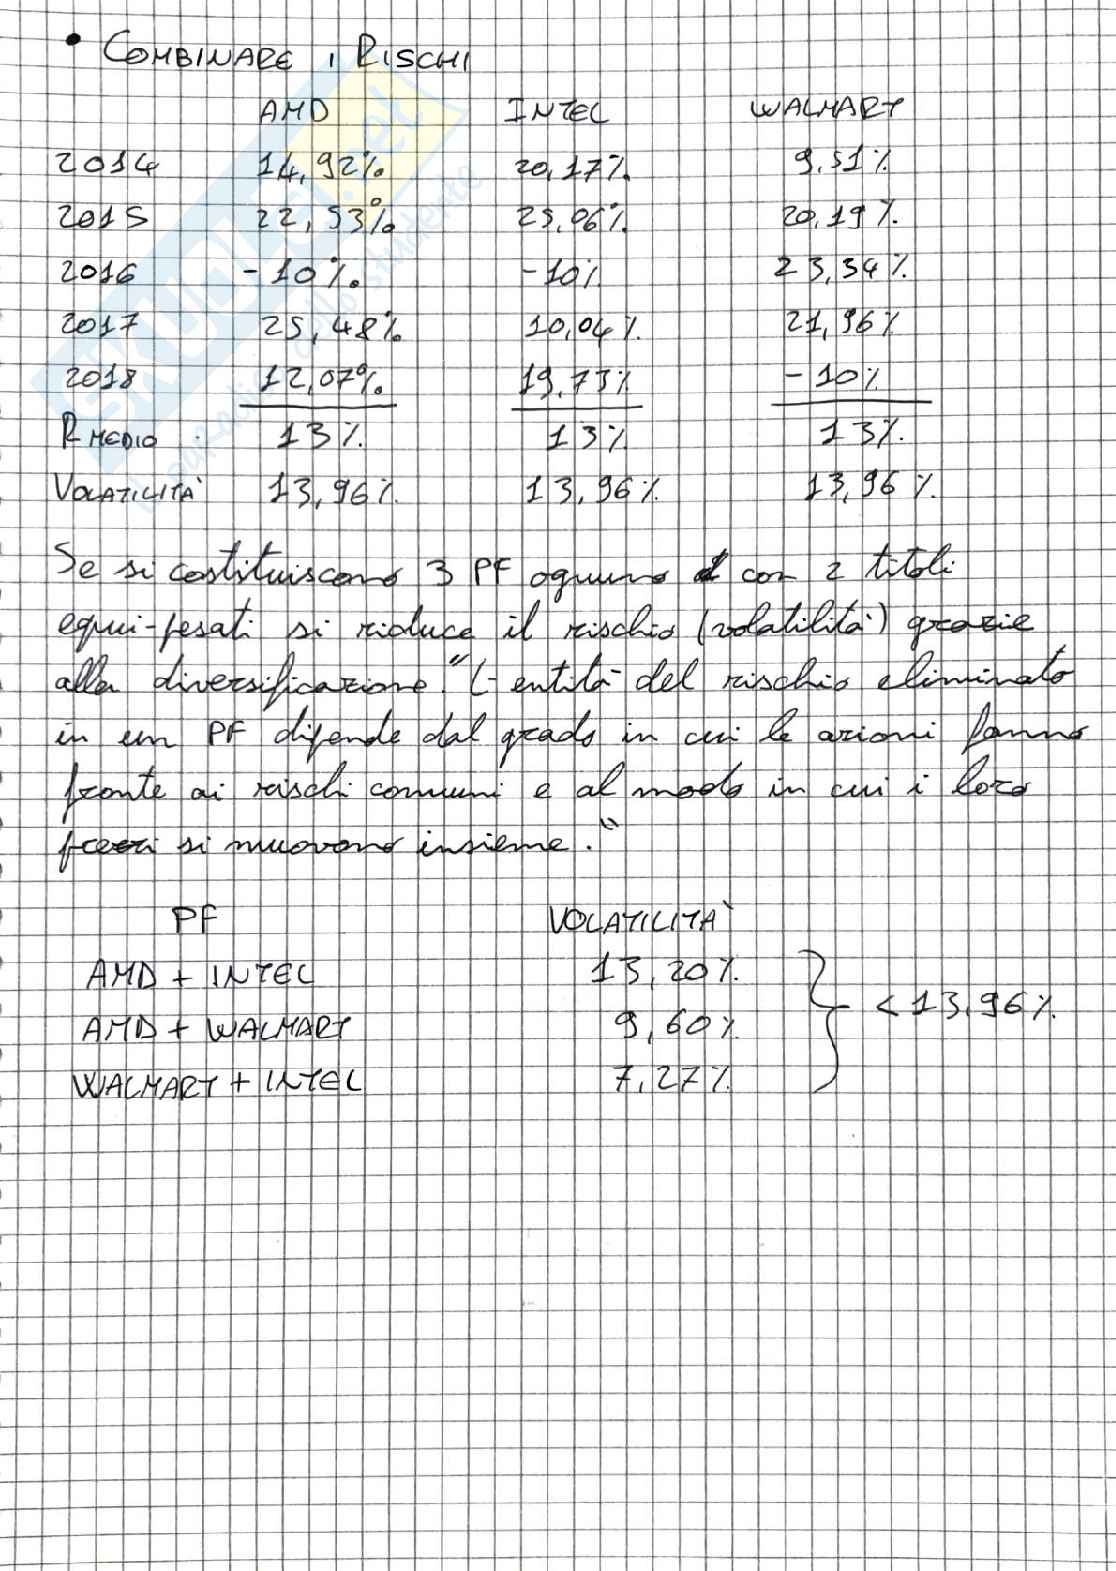 • COMBINARE I RISCHI
AMD INTEL WALMART
2014 14,92% 20,17% 9,51%
2015 22,53% 25,06% 20,19%
2016 -10% -10% 23,34%
2017 25,48% 10,04% 21,96%
2018 12,07% 19,73% -10%
R MEDIO 13% 13% 13%
VOLATILITÀ 13,96% 13,96% 13,96%
Se si costituiscono 3 PF ognuno con 2 titoli
equi-pesati si riduce il rischio (volatilità) grazie
alla diversificazione. "L'entità del rischio eliminato
in un PF dipende dal grado in cui le azioni fanno
fronte ai rischi comuni e al modo in cui i loro
prezzi si muovono insieme."
PF VOLATILITÀ
AMD + INTEL 13,20%
AMD + WALMART 9,60% < 13,96%
WALMART + INTEL 7,27%